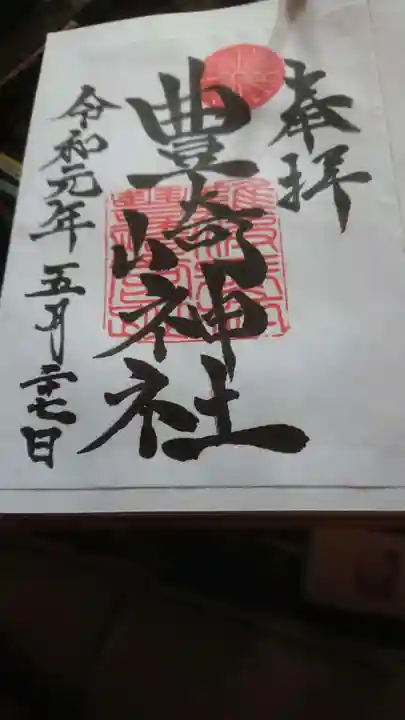 奉拝
豊崎神社
令和元年五月二十七日